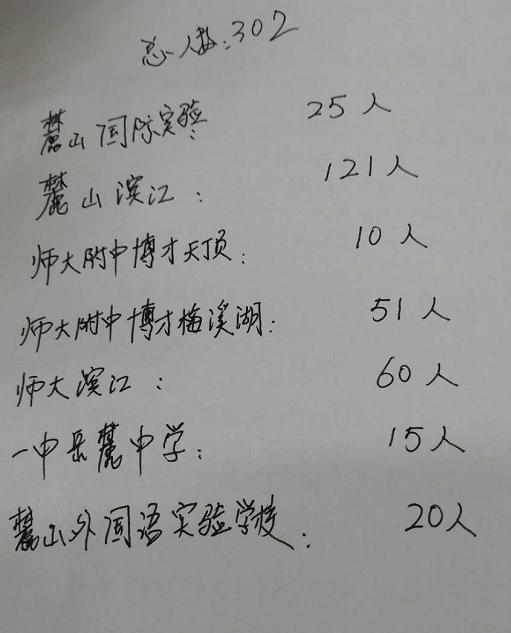 总人数:302
麓山国际实验: 25人
麓山滨江: 121人
师大附中博才天顶: 10人
师大附中博才梅溪湖: 51人
师大滨江: 60人
一中岳麓中学: 15人
麓山外国语实验学校: 20人